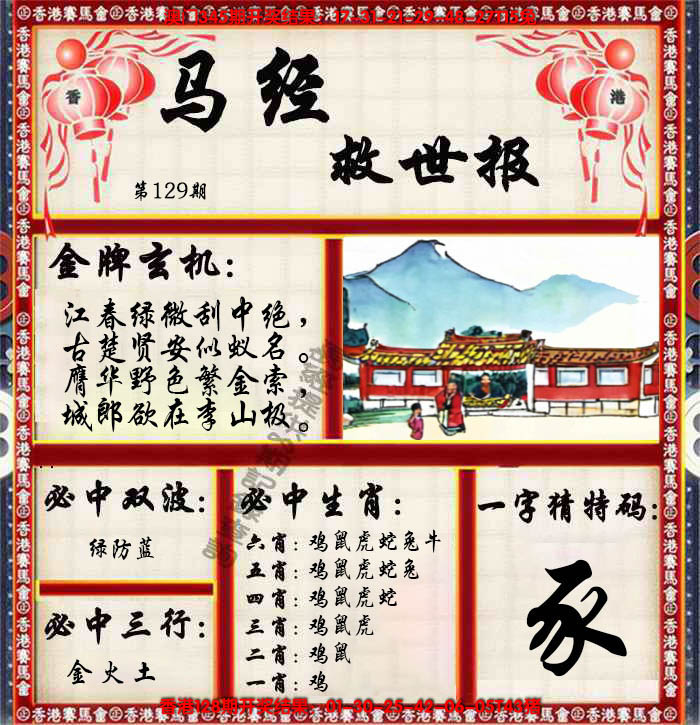 马经
救世报
第129期
香
港
金牌玄机：
江春绿微刮中绝，
古楚贤安似蚁名。
膺华野色繁金索，
城郎欲在李山极。
必中双波：
绿防蓝
必中三行：
金火土
必中生肖：
六肖：鸡鼠虎蛇兔牛
五肖：鸡鼠虎蛇兔
四肖：鸡鼠虎蛇
三肖：鸡鼠虎
二肖：鸡鼠
一肖：鸡
一字猜特码：
豕
香港128期开奖结果：01-30-25-42-06-05T43猪
香港賽馬會